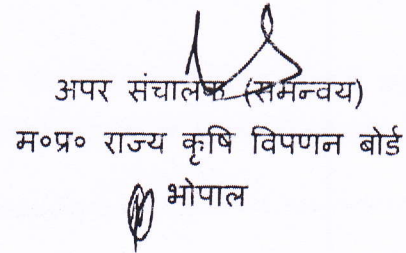 अपर संचालक (समन्वय)
म०प्र० राज्य कृषि विपणन बोर्ड
भोपाल